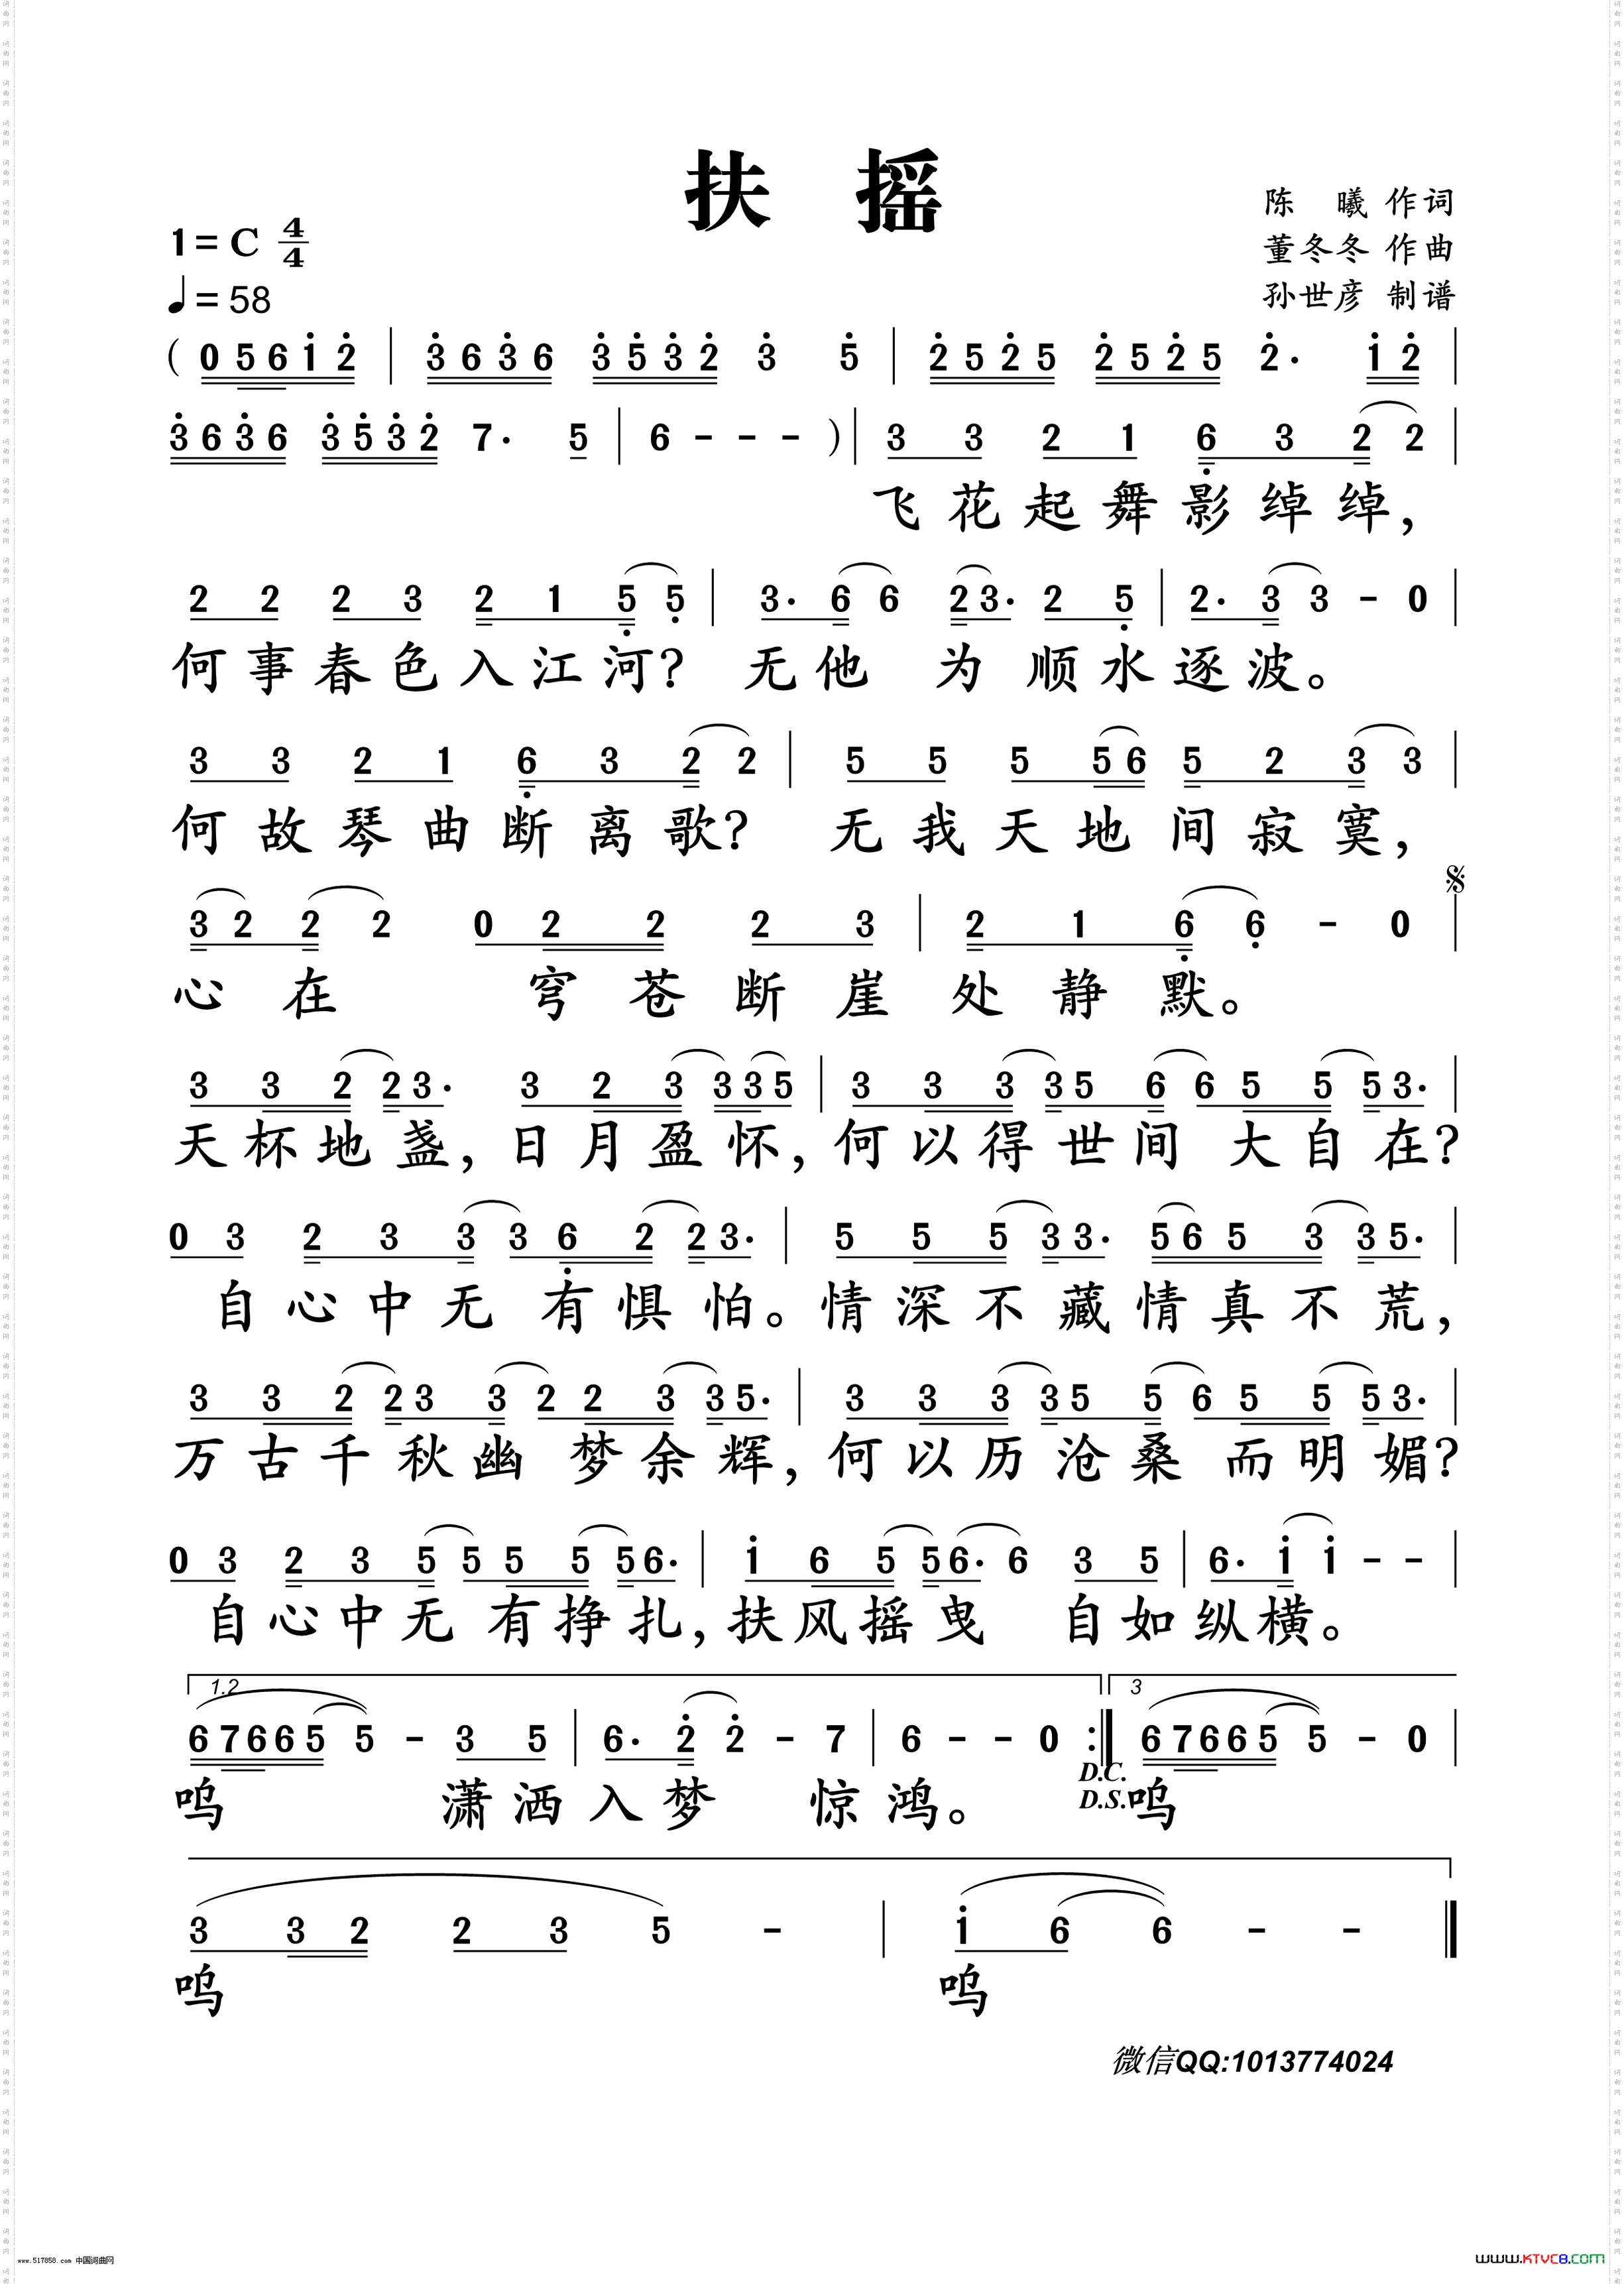 扶 摇
陈 曦 作词
1=C 4/4
董冬冬 作曲
♩=58
孙世彦 制谱
( 0 5 6 1̇ 2̇ | 3̇ 6 3̇ 6 3̇ 5̇ 3̇ 2̇ 3̇ 5̇ | 2̇ 5 2̇ 5 2̇ 5 2̇ 5 2̇· 1̇ 2̇ |
3̇ 6 3̇ 6 3̇ 5̇ 3̇ 2̇ 7· 5 | 6 - - - ) | 3 3 2 1 6̣ 3 2 2 |
飞花起舞影绰绰，
2 2 2 3 2 1 5̣ 5̣ | 3· 6 6 2 3· 2 5̣ | 2· 3 3 - 0 |
何事春色入江河？ 无他 为 顺水逐波。
3 3 2 1 6̣ 3 2 2 | 5 5 5 5 6 5 2 3 3 |
何故琴曲断离歌？ 无我天地间寂寞，
3 2 2 2 0 2 2 2 3 | 2 1 6̣ 6̣ - 0 |
心在 穹苍断崖处静默。
3 3 2 2 3· 3 2 3 3 3 5 | 3 3 3 3 5 6 6 5 5 5 3· |
天杯地盏，日月盈怀，何以得世间 大自在？
0 3 2 3 3 3 6̣ 2 2 3· | 5 5 5 3 3· 5 6 5 3 3 5· |
自心中无 有惧怕。情深不藏情真不荒，
3 3 2 2 3 3 2 2 3 3 5· | 3 3 3 3 5 5 6 5 5 5 3· |
万古千秋幽 梦余辉，何以历沧桑 而明媚？
0 3 2 3 5 5 5 5 5 6· | 1̇ 6 5 5 6· 6 3 5 | 6· 1̇ 1̇ - - |
自心中无 有挣扎，扶风摇曳 自如纵横。
1.2 3
6 7 6 6 5 5 - 3 5 | 6· 2̇ 2̇ - 7 | 6 - - 0 :‖ 6 7 6 6 5 5 - 0 |
D.C.
D.S.
呜 潇洒入梦 惊鸿。 呜
3 3 2 2 3 5 - | 1̇ 6 6 - - ‖
呜 呜
微信QQ:1013774024
www.517858.com 中国词曲网
www.KTVC8.com